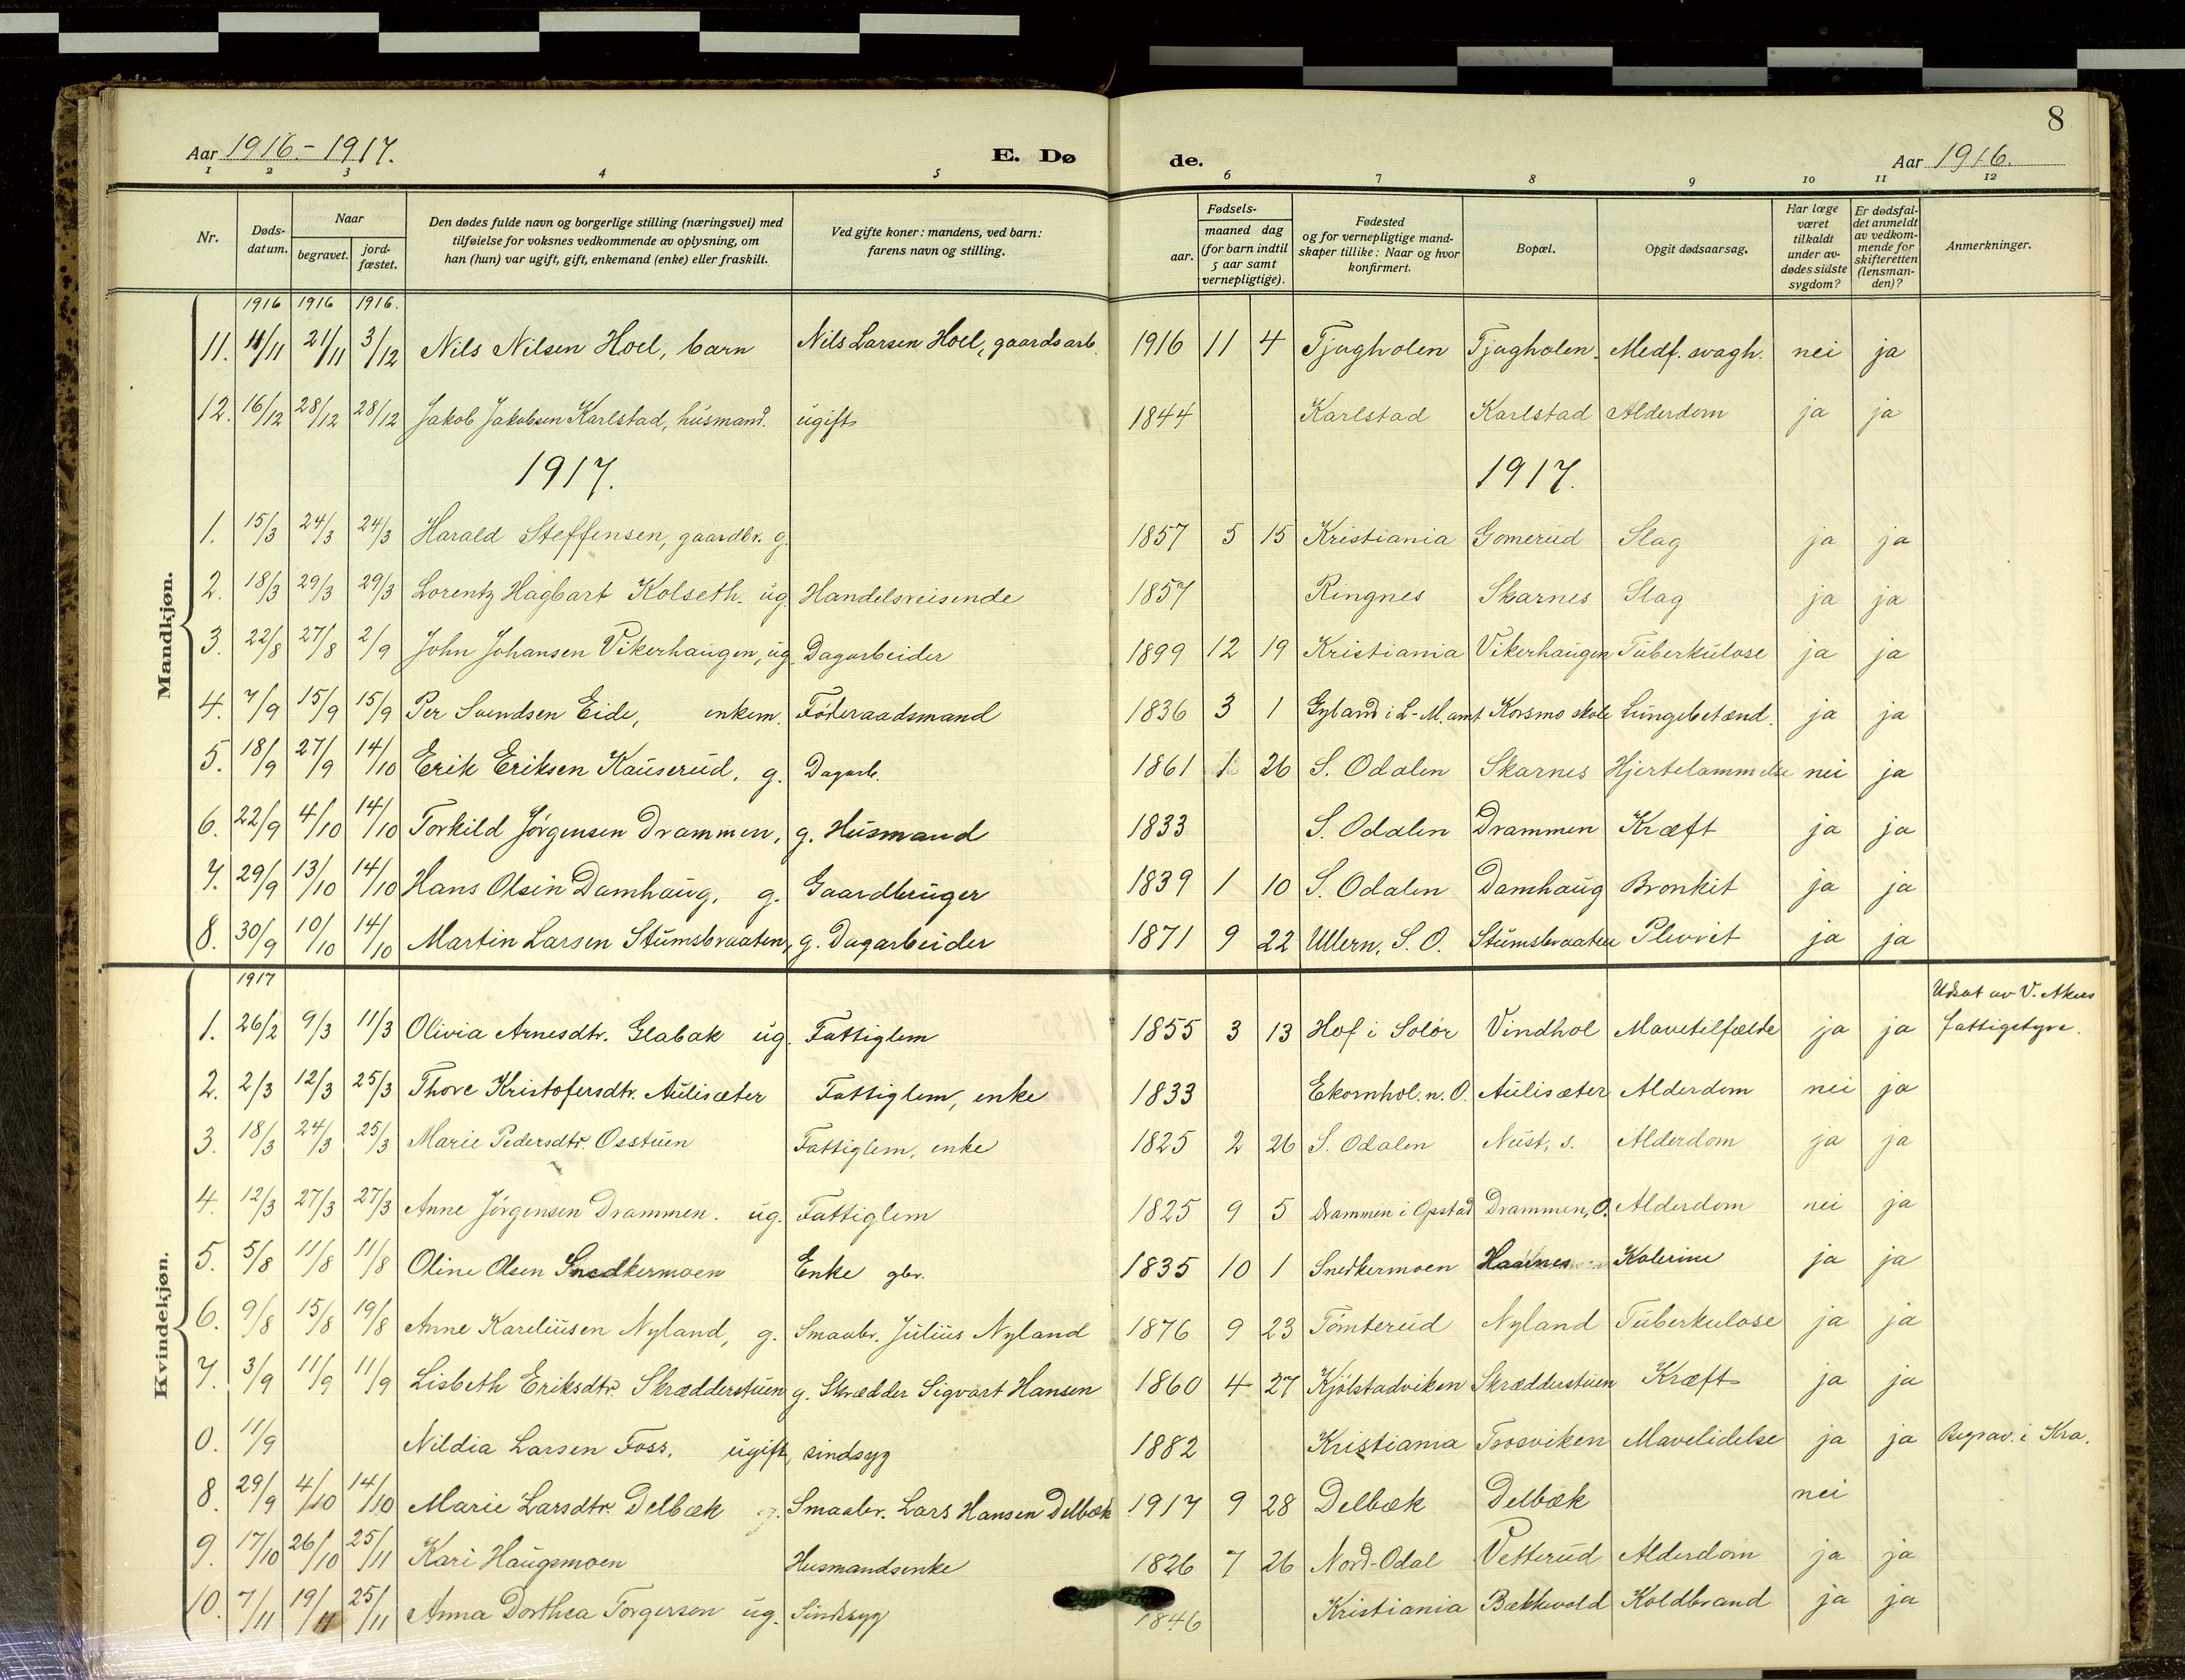 8
Aar 1916-1917. E. Dø de. Aar 1916.
1 2 3 4 5 6 7 8 9 10 11 12
Nr. Døds-datum. Naar begravet. jord-fæstet. Den dødes fulde navn og borgerlige stilling (næringsvei) med tilføielse for voksnes vedkommende av oplysning, om han (hun) var ugift, gift, enkemand (enke) eller fraskilt. Ved gifte koner: mandens, ved barn: farens navn og stilling. Fødsels- aar. maaned dag (for barn indtil 5 aar samt vernepligtige). Fødested og for vernepligtige mand-skaper tillike: Naar og hvor konfirmert. Bopæl. Opgit dødsaarsag. Har læge været tilkaldt under av-dødes sidste sygdom? Er dødsfal-det anmeldt av vedkom-mende for skifteretten (lensman-den)? Anmerkninger.
Mandkjøn.
1916 1916 1916.
11. 11/11 21/11 3/12 Nils Nilsen Hoel, barn Nils Larsen Hoel, gaardsarb. 1916 11 4 Tjugholen Tjugholen. Medf. svagh. nei ja
12. 16/12 28/12 28/12 Jakob Jakobsen Karlstad, husmand. ugift 1844 Karlstad Karlstad Alderdom ja ja
1917. 1917.
1. 15/3 24/3 24/3 Harald Steffensen, gaardbr. g. 1857 5 15 Kristiania Gomerud Slag ja ja
2. 18/3 29/3 29/3 Lorentz Hagbart Kolseth. ug. Handelsreisende 1857 Ringnes Skarnes Slag ja ja
3. 22/8 27/8 2/9 John Johansen Vikerhaugen, ug. Dagarbeider 1899 12 19 Kristiania Vikerhaugen Tuberkulose ja ja
4. 7/9 15/9 15/9 Per Svendsen Eide, enkem. Føderaadsmand 1836 3 1 Gyland i L-M. amt Korsmo skole Lungebetænd. ja ja
5. 18/9 27/9 14/10 Erik Eriksen Kauserud, g. Dagarb. 1861 1 26 S. Odalen Skarnes Hjertelammelse nei ja
6. 22/9 4/10 14/10 Torkild Jørgensen Drammen, g. Husmand 1833 S. Odalen Drammen Kræft ja ja
7. 29/9 13/10 14/10 Hans Olsen Damhaug, g. Gaardbruger 1839 1 10 S. Odalen Damhaug Bronkit ja ja
8. 30/9 10/10 14/10 Martin Larsen Stumsbraaten, g. Dagarbeider 1871 9 22 Ullern, S. O. Stumsbraaten Plevrit ja ja
Kvindekjøn.
1917
1. 26/2 9/3 11/3 Olivia Arnesdtr. Glabak ug. Fattiglem 1855 3 13 Hof i Solør Vindhol Mavetilfælde ja ja Udsat av V. Akers fattigstyre.
2. 2/3 12/3 25/3 Thore Kristofersdtr. Aulisæter Fattiglem, enke 1833 Ekornhol. n. O. Aulisæter Alderdom nei ja
3. 18/3 24/3 25/3 Marie Pedersdtr. Osstuen Fattiglem, enke 1825 2 26 S. Odalen Nust, s. Alderdom ja ja
4. 12/3 27/3 27/3 Anne Jørgensen Drammen. ug. Fattiglem 1825 9 5 Drammen i Opstad Drammen, O. Alderdom nei ja
5. 5/8 11/8 11/8 Oline Olsen Snedkermoen Enke gbr. 1835 10 1 Snedkermoen Haarnes Kolerine ja ja
6. 9/8 15/8 19/8 Anne Kareliusen Nyland, g. Smaabr. Julius Nyland 1876 9 23 Tomterud Nyland Tuberkulose ja ja
7. 3/9 11/9 11/9 Lisbeth Eriksdtr. Skrædderstuen g. Skrædder Sigvart Hansen 1860 4 27 Kjølstadviken Skrædderstuen Kræft ja ja
0. 11/9 Nildia Larsen Foss. ugift, sindsyg 1882 Kristiania Trosviken Mavelidelse ja ja Begrav. i Kra.
8. 29/9 4/10 14/10 Marie Larsdtr. Delbæk g. Smaabr. Lars Hansen Delbæk 1917 9 28 Delbæk Delbæk nei
9. 17/10 26/10 25/11 Kari Haugsmoen Husmandsenke 1826 7 26 Nord-Odal Vetterud Alderdom ja ja
10. 7/11 19/11 25/11 Anna Dorthea Torgersen ug. Sindssyg 1846 Kristiania Bækkevold Koldbrand ja ja